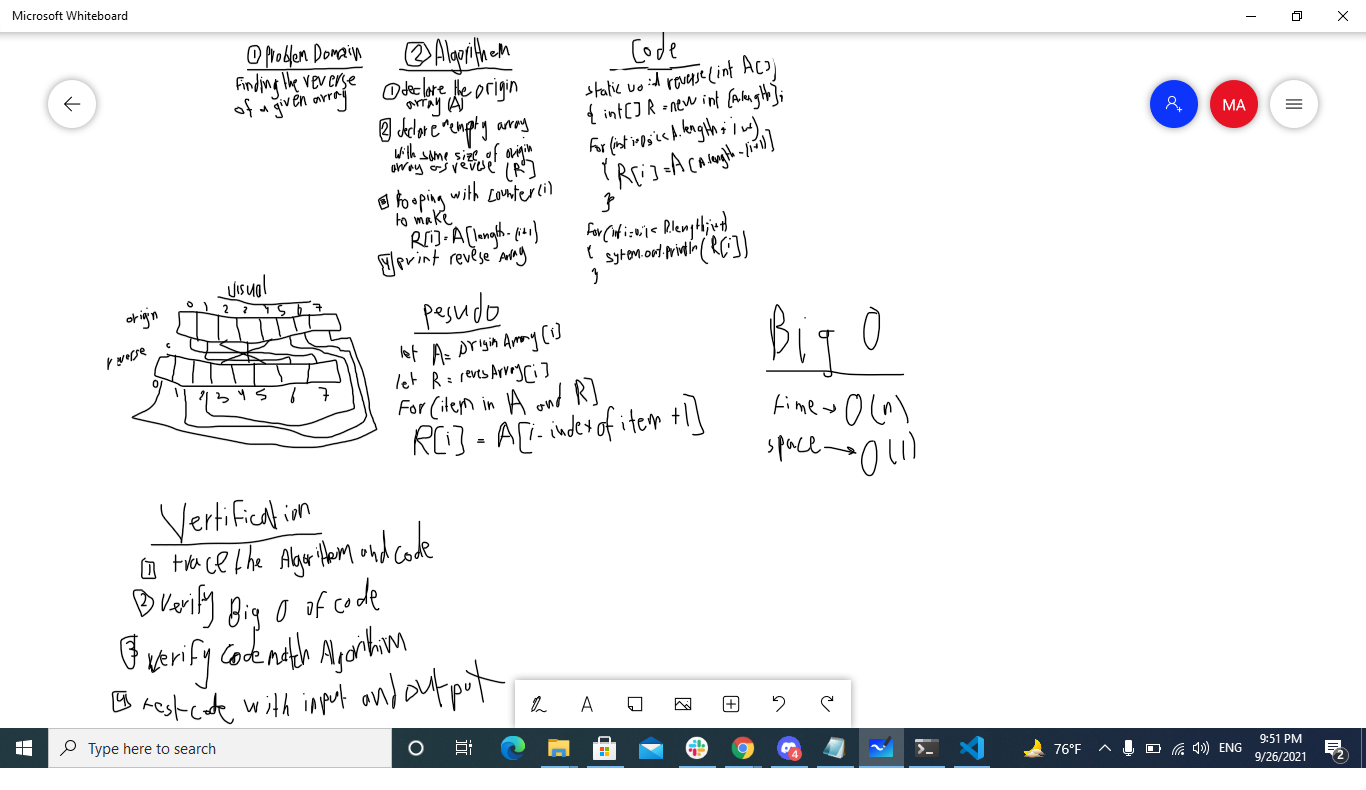 Microsoft Whiteboard
① Problem Domain
Finding the reverse
of a given array
② Algorithem
① declare the origin
array (A)
2 declare empty array
with same size of origin
array as reverse (R]
3 looping with counter (i)
to make
R[i] = A[length - (i+1)
4 print reverse array
Code
static void reverse(int A[])
{ int[] R = new int [A.length];
For (int i=0; i< A.length; i++)
{ R[i] = A[A.length - (i+1)]
}
For (int i=0; i< R.length; i++)
{ system.out.println (R[i])
}
MA
Visual
0 1 2 3 4 5 6 7
origin
reverse
0 1 2 3 4 5 6 7
pesudo
let A = OriginArray[i]
let R = reversArray[i]
For (item in A and R]
R[i] = A[i - index of item + 1]
Big O
time → O(n)
space → O(1)
Vertification
1 trace the Algorithem and code
2 verify Big O of code
3 verify code match Algorithim
4 test code with input and output
A
Type here to search
4
76°F
ENG
9:51 PM
9/26/2021
2